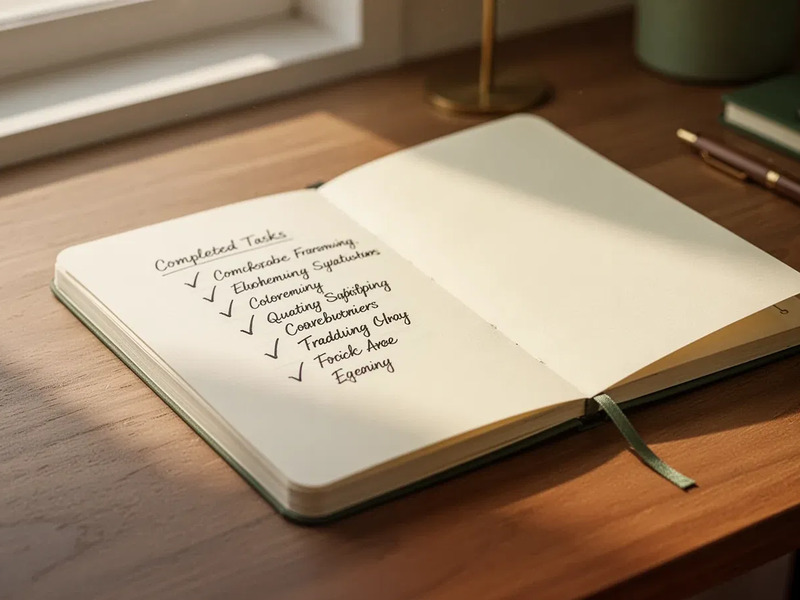 Completed Tasks
✓ Comckorabe Framming.
✓ Eluchemining Sypatustions
✓ Coloreminy
✓ Quating Sqpilping
Coarebutniers
✓ Tradduing Olray
✓ Focick Avee
Egeariny